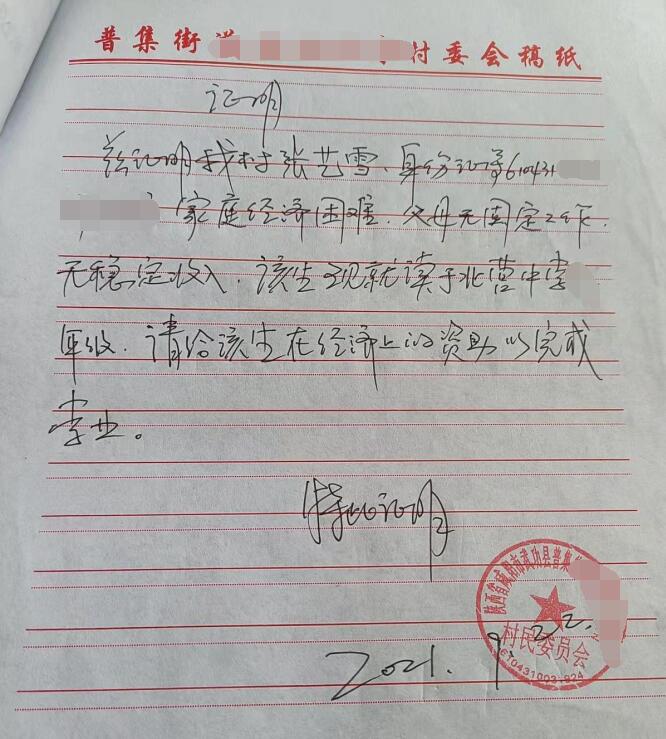 普集街 村委会稿纸
证明
兹证明我村张艺雪,身份证号610431
家庭经济困难,父母无固定工作,
无稳定收入,该生现就读于北营中学
年级,请给该生在经济上的资助以完成
学业。
特此证明
陕西省咸阳市武功县普集
村民委员会
6104310031924
2021.9.22.